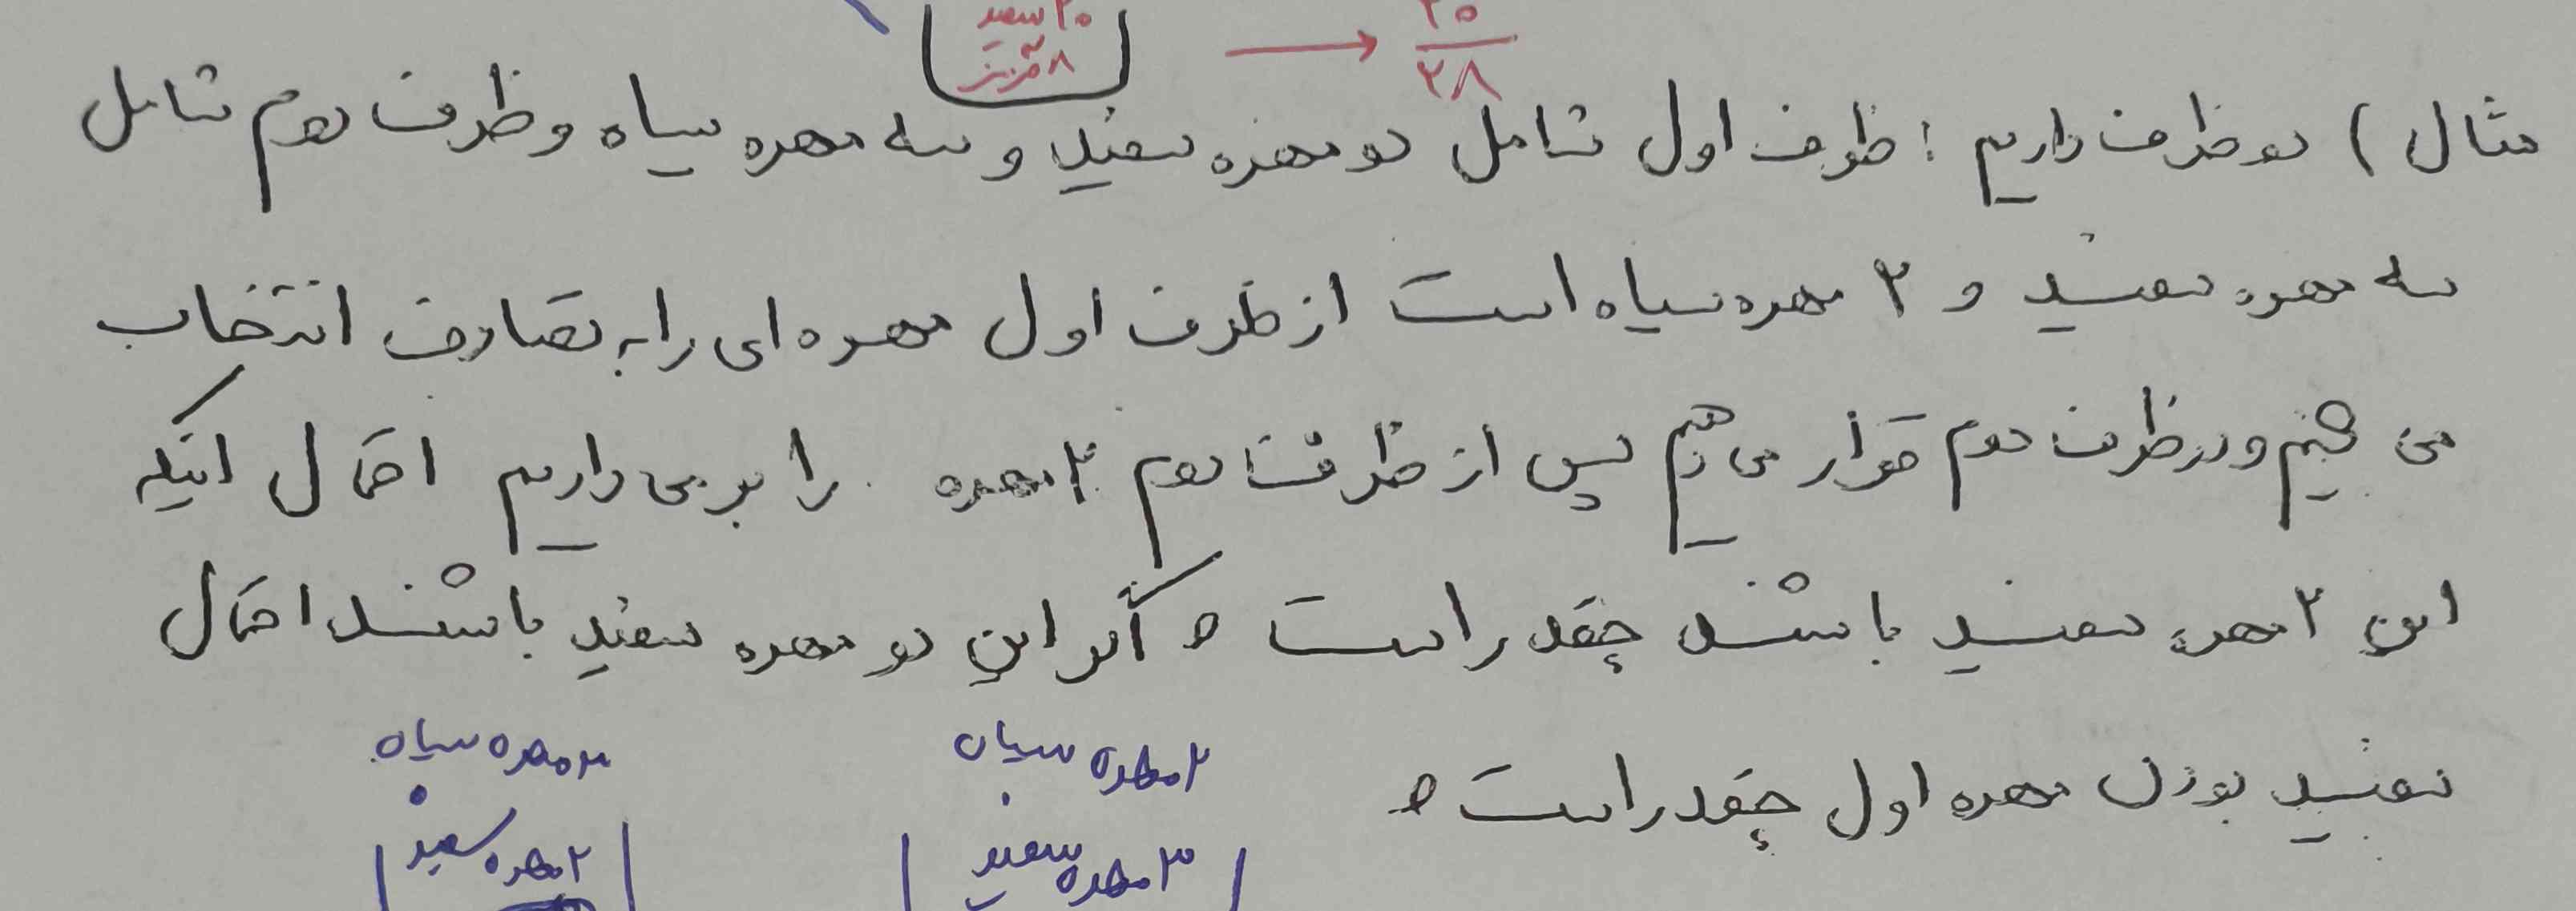 ۲۰ سفید
۸ قرمز
۲۰
۲۸
مثال ) دو ظرف داریم : ظرف اول شامل دو مهره سفید و سه مهره سیاه و ظرف دوم شامل
سه مهره سفید و ۲ مهره سیاه است از ظرف اول مهره ای را به تصادف انتخاب
می کنیم و در ظرف دوم قرار می دهیم پس از ظرف دوم ۲ مهره را بر می داریم احتمال اینکه
این ۲ مهره سفید باشند چقدر است ؟ اگر این دو مهره سفید باشند احتمال
سفید بودن مهره اول چقدر است ؟
۲ مهره سیاه
۳ مهره سیاه
۳ مهره سفید
۲ مهره سفید